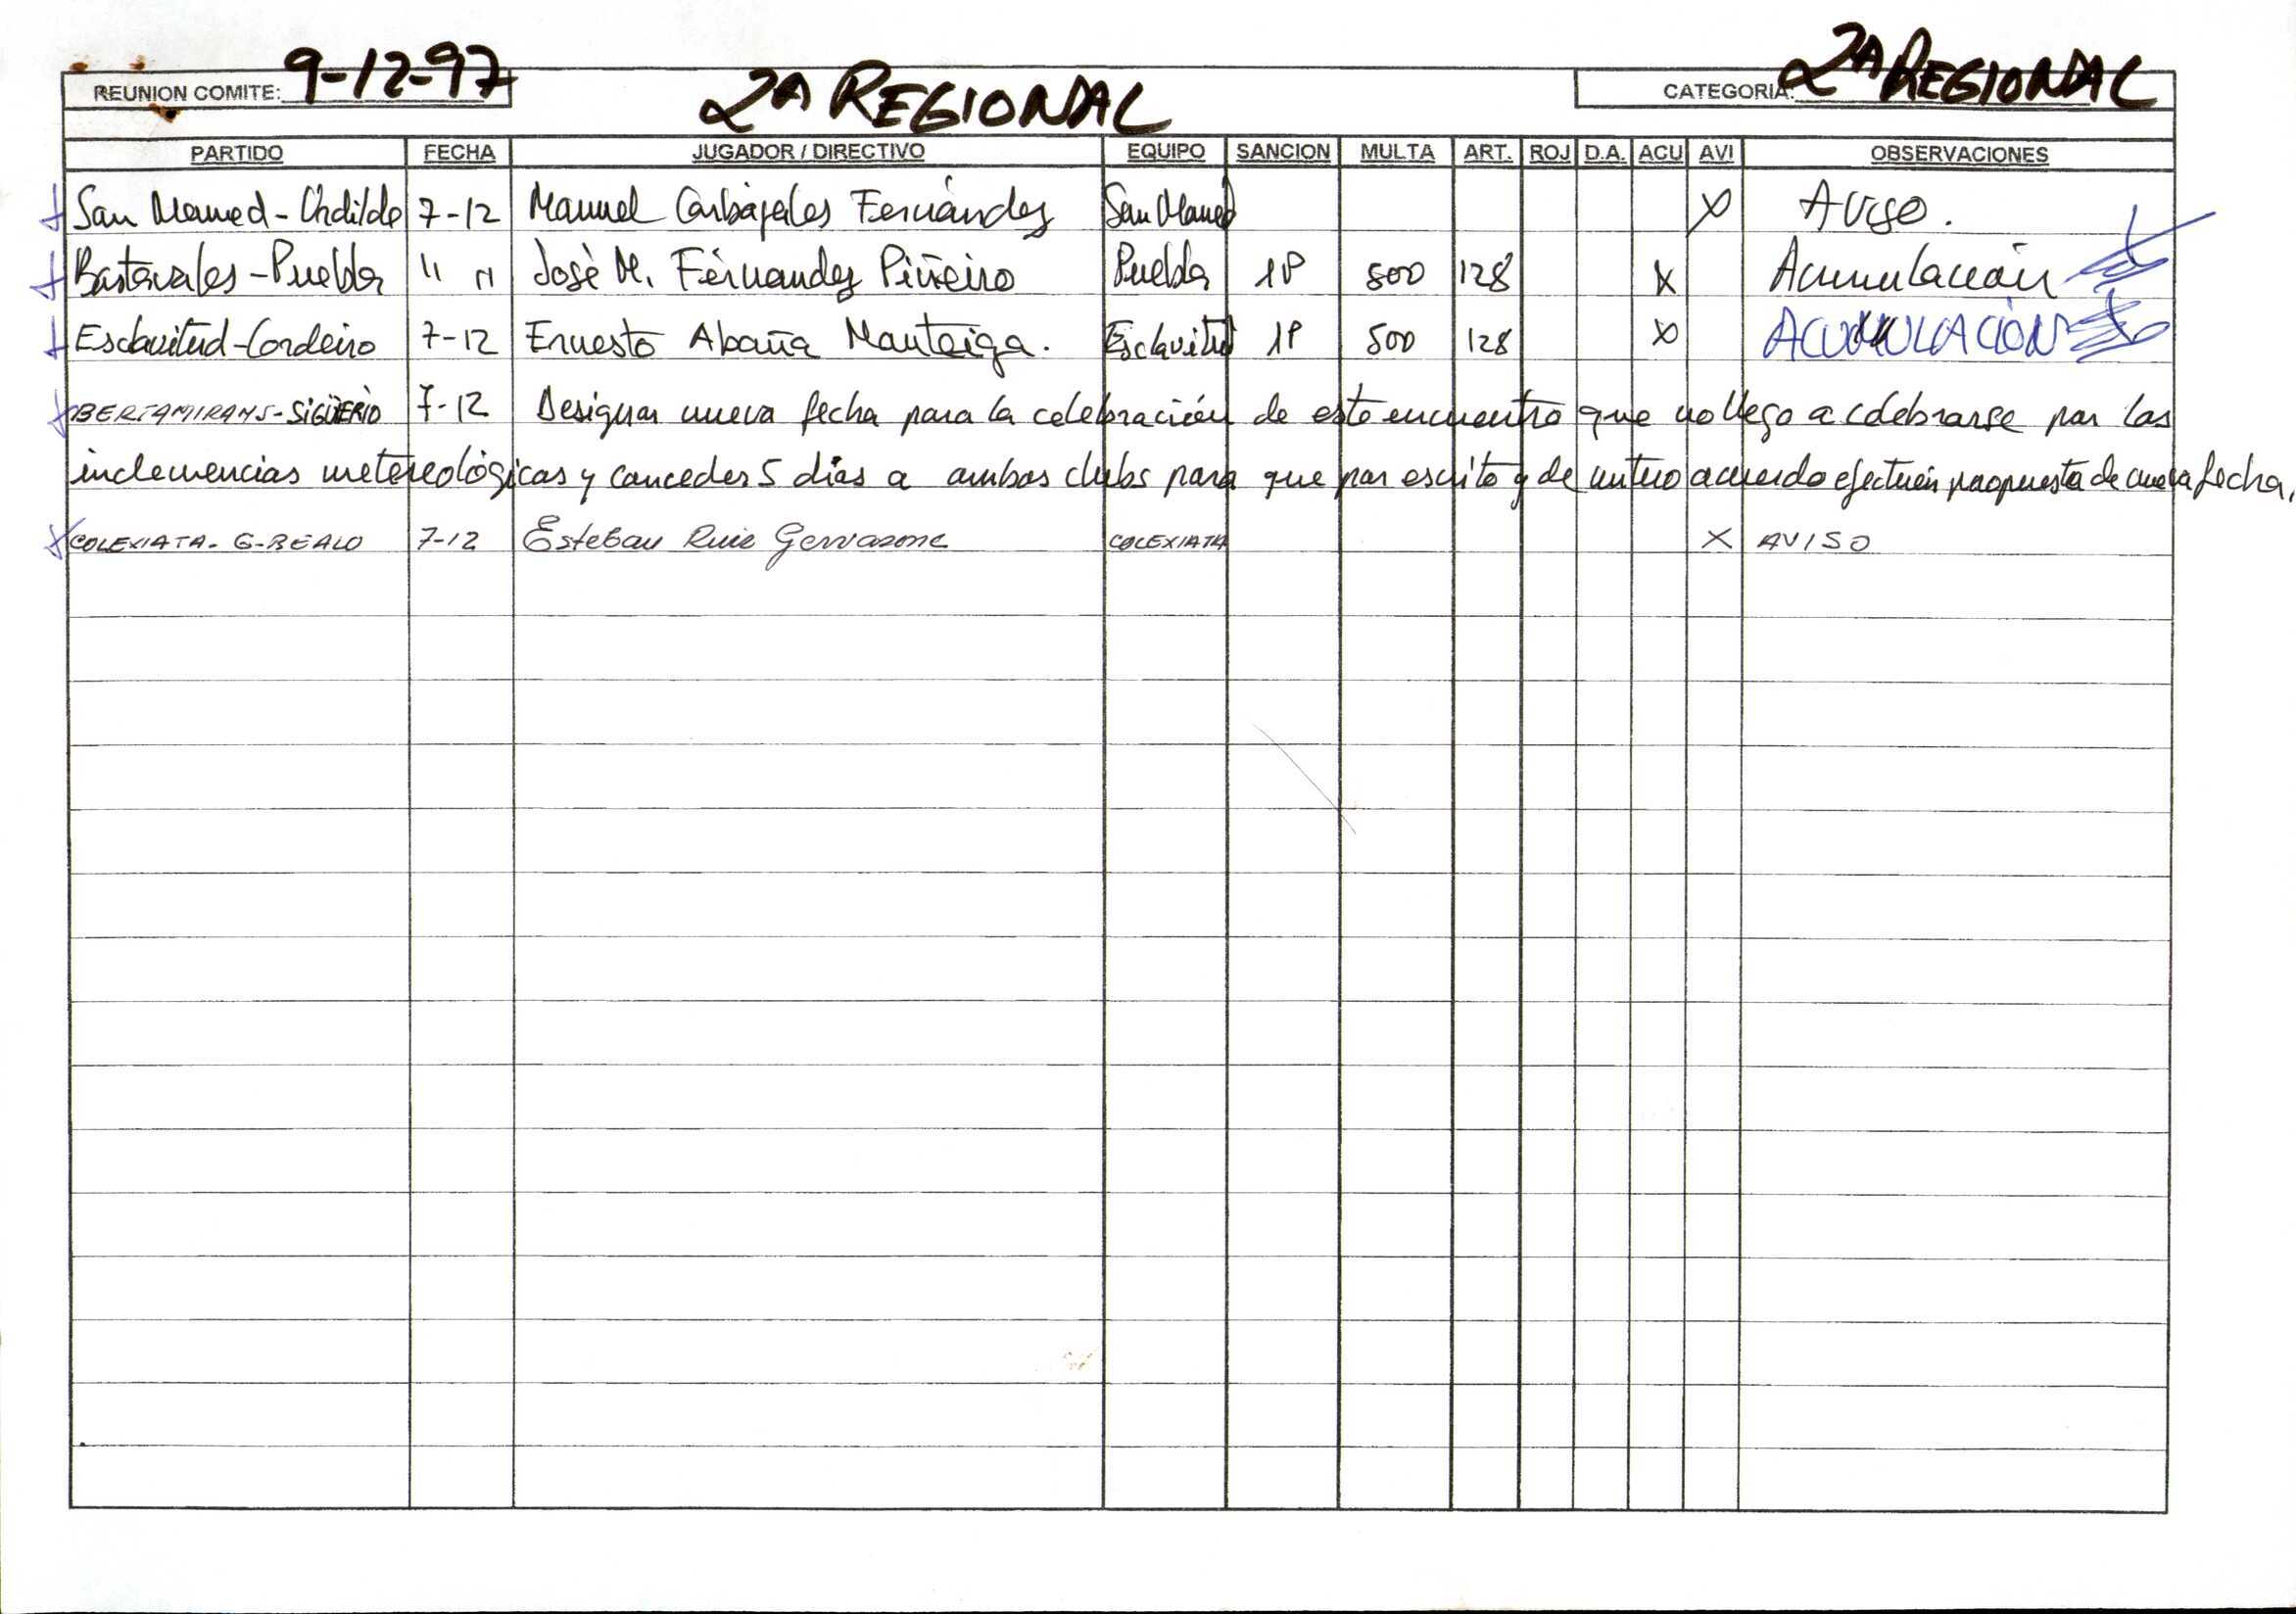 REUNION COMITE: 9-12-97 2ª REGIONAL CATEGORIA: 2ª REGIONAL
PARTIDO FECHA JUGADOR / DIRECTIVO EQUIPO SANCION MULTA ART. ROJ D.A. ACU AVI OBSERVACIONES
San Mamed - 7-12 Manuel Carbajales Fernández San Mamed X Aviso.
Bastavales - Puebla " " José M. Fernandez Piñeiro Puebla 1P 500 128 X Acumulación
Esclavitud - Cordeiro 7-12 Ernesto Abaña Manteiga. Esclavitud 1P 500 128 X ACUMULACIÓN
BERTAMIRANS - SIGÜERIO 7-12 Designar nueva fecha para la celebración de este encuentro que no llego a celebrarse por las
inclemencias metereológicas y conceder 5 días a ambos clubs para que por escrito y de mutuo acuerdo efectuén propuesta de nueva fecha.
COLEXIATA - G-BEALO 7-12 Esteban Ruiz Gervasone COLEXIATA X AVISO